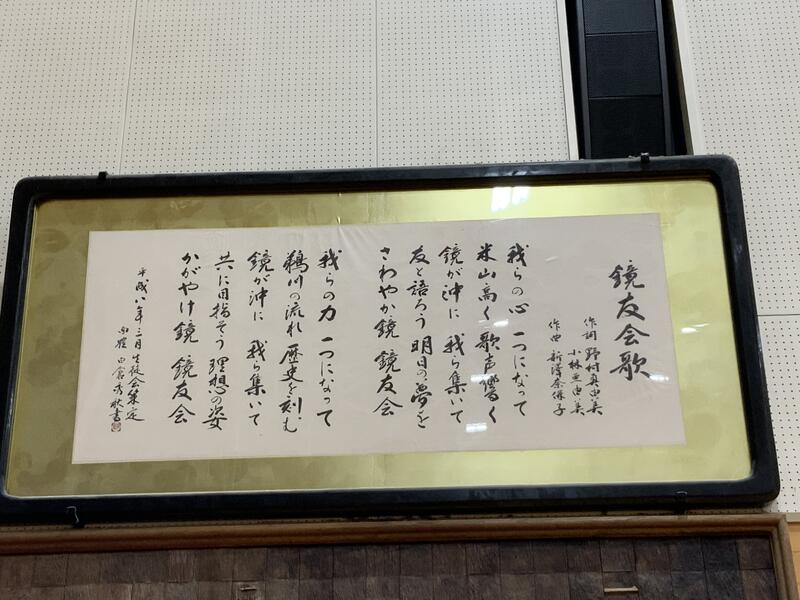 鏡友会歌
作詞 野村真由美
小林亜由美
作曲 新澤奈保子
我らの心 一つになって
米山高く 歌声響く
鏡が沖に 我ら集いて
友と語ろう 明日の夢を
さわやか鏡 鏡友会
我らの力 一つになって
鵜川の流れ 歴史を刻む
鏡が沖に 我ら集いて
共に目指そう 理想の姿
かがやけ鏡 鏡友会
平成八年三月 生徒会策定
書